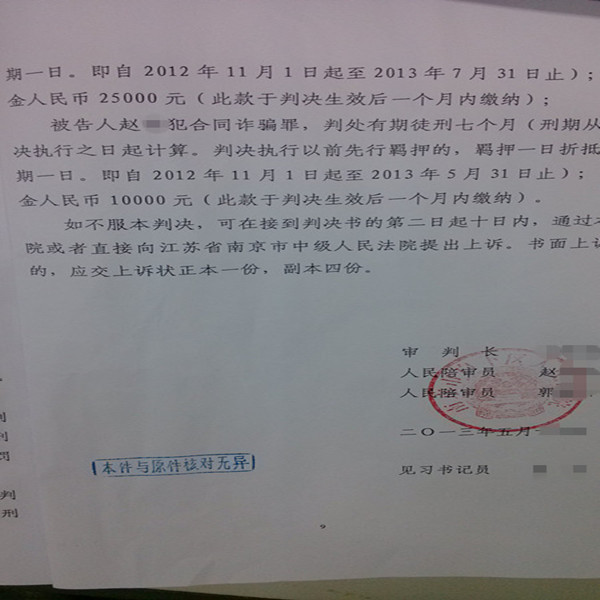 期一日。即自 2012 年 11 月 1 日起至 2013 年 7 月 31 日止）；
金人民币 25000 元（此款于判决生效后一个月内缴纳）；
被告人赵 犯合同诈骗罪，判处有期徒刑七个月（刑期从
决执行之日起计算。判决执行以前先行羁押的，羁押一日折抵
期一日。即自 2012 年 11 月 1 日起至 2013 年 5 月 31 日止）；
金人民币 10000 元（此款于判决生效后一个月内缴纳）。
如不服本判决，可在接到判决书的第二日起十日内，通过本
院或者直接向江苏省南京市中级人民法院提出上诉。书面上诉
的，应交上诉状正本一份，副本四份。
审 判 长
人民陪审员 赵
人民陪审员 郭
二〇一三年五月
本件与原件核对无异
见习书记员
9
判
刑